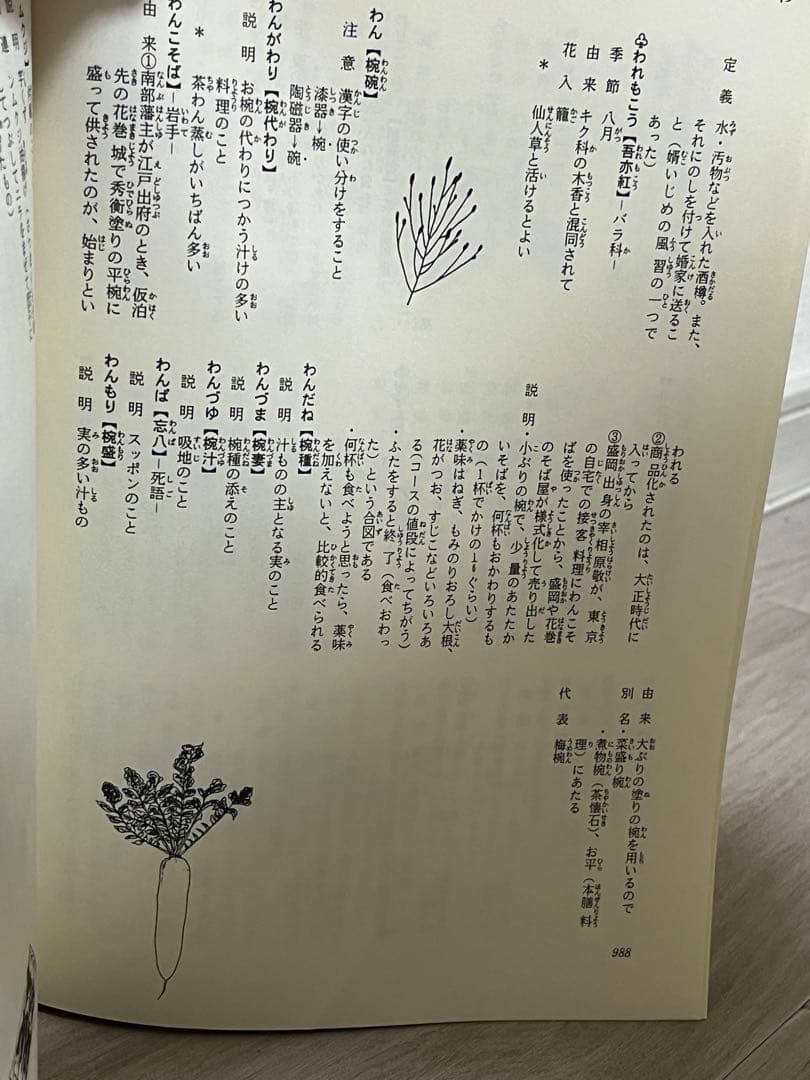 定義 水・汚物などを入れた酒樽。また、
それにのしを付けて婚家に送るこ
と(婿いじめの風習の一つで
あった)
♧われもこう【吾亦紅】―バラ科―
季節 八月
由来 キク科の木香と混同されて
花入 籠
＊ 仙人草と活けるとよい
わん【椀碗】
注意 漢字の使い分けをすること
漆器→椀
陶磁器→碗
わんがわり【椀代わり】
説明 お椀の代わりにつかう汁けの多い
料理のこと
＊ 茶わん蒸しがいちばん多い
わんこそば】―岩手―
由来①南部藩主が江戸出府のとき、仮泊
先の花巻城で秀衡塗りの平椀に
盛って供されたのが、始まりとい
われる
②商品化されたのは、大正時代に
入ってから
③盛岡出身の宰相原敬が、東京
の自宅での接客料理にわんこそ
ばを使ったことから、盛岡や花巻
のそば屋が様式化して売り出した
説明・小ぶりの椀で、少量のあたたか
いそばを、何杯もおかわりするも
の(1杯でかけの1/6ぐらい)
・薬味はねぎ、もみのりおろし大根、
花がつお、すじこなどいろいろあ
る(コースの値段によってちがう)
・ふたをすると終了(食べおわっ
た)という合図である
・何杯も食べようと思ったら、薬味
を加えないと、比較的食べられる
わんだね【椀種】
説明 汁ものの主となる実のこと
わんづま【椀妻】
説明 椀種の添えのこと
わんづゆ【椀汁】
説明 吸地のこと
わんぱ【忘八】―死語―
説明 スッポンのこと
わんもり【椀盛】
説明 実の多い汁もの
由来 大ぶりの塗りの椀を用いるので
別名・菜盛り椀
・煮物椀(茶懐石)、お平(本膳料
理)にあたる
代表 梅椀
988